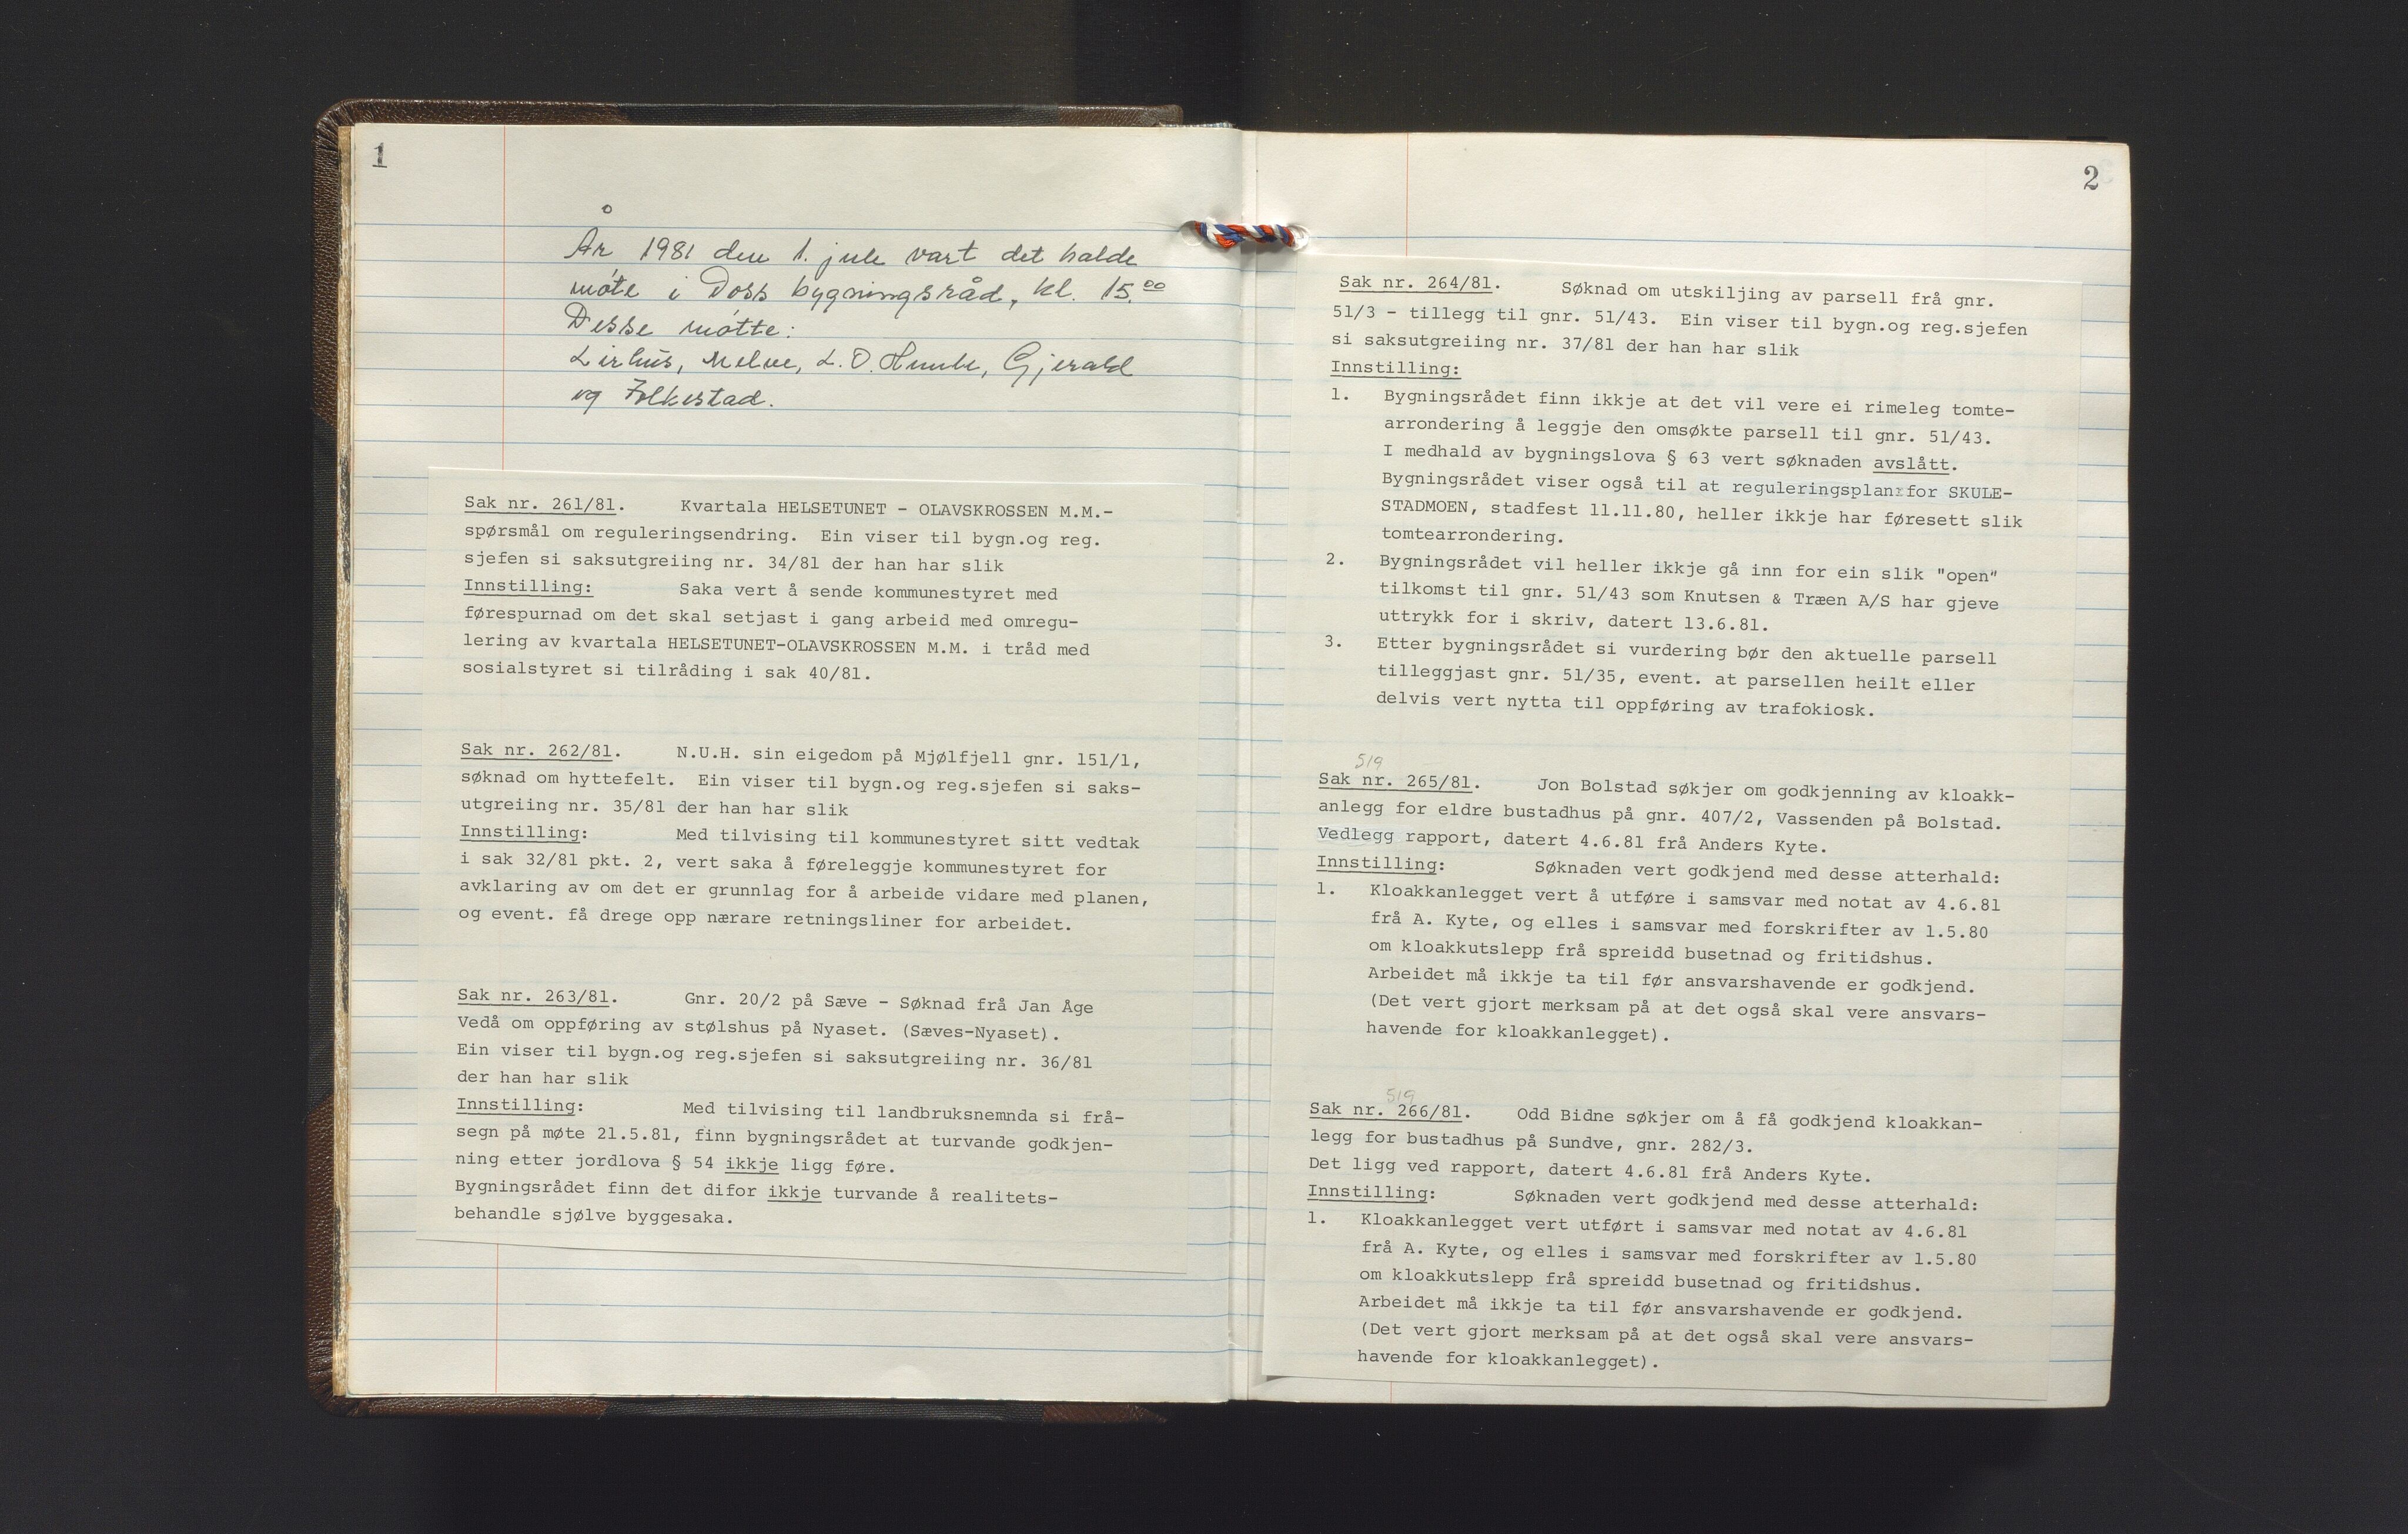 1
År 1981 den 1. jule vart det halde
møte i Voss bygningsråd, kl. 15.00
Desse møtte:
Lirhus, Melve, L. O. Humle, Gjerald
og Folkestad.
Sak nr. 261/81. Kvartala HELSETUNET - OLAVSKROSSEN M.M.-
spørsmål om reguleringsendring. Ein viser til bygn.og reg.
sjefen si saksutgreiing nr. 34/81 der han har slik
Innstilling: Saka vert å sende kommunestyret med
førespurnad om det skal setjast i gang arbeid med omregu-
lering av kvartala HELSETUNET-OLAVSKROSSEN M.M. i tråd med
sosialstyret si tilråding i sak 40/81.
Sak nr. 262/81. N.U.H. sin eigedom på Mjølfjell gnr. 151/1,
søknad om hyttefelt. Ein viser til bygn.og reg.sjefen si saks-
utgreiing nr. 35/81 der han har slik
Innstilling: Med tilvising til kommunestyret sitt vedtak
i sak 32/81 pkt. 2, vert saka å føreleggje kommunestyret for
avklaring av om det er grunnlag for å arbeide vidare med planen,
og event. få drege opp nærare retningsliner for arbeidet.
Sak nr. 263/81. Gnr. 20/2 på Sæve - Søknad frå Jan Åge
Vedå om oppføring av stølshus på Nyaset. (Sæves-Nyaset).
Ein viser til bygn.og reg.sjefen si saksutgreiing nr. 36/81
der han har slik
Innstilling: Med tilvising til landbruksnemnda si frå-
segn på møte 21.5.81, finn bygningsrådet at turvande godkjen-
ning etter jordlova § 54 ikkje ligg føre.
Bygningsrådet finn det difor ikkje turvande å realitets-
behandle sjølve byggesaka.
2
Sak nr. 264/81. Søknad om utskiljing av parsell frå gnr.
51/3 - tillegg til gnr. 51/43. Ein viser til bygn.og reg.sjefen
si saksutgreiing nr. 37/81 der han har slik
Innstilling:
1. Bygningsrådet finn ikkje at det vil vere ei rimeleg tomte-
arrondering å leggje den omsøkte parsell til gnr. 51/43.
I medhald av bygningslova § 63 vert søknaden avslått.
Bygningsrådet viser også til at reguleringsplan for SKULE-
STADMOEN, stadfest 11.11.80, heller ikkje har føresett slik
tomtearrondering.
2. Bygningsrådet vil heller ikkje gå inn for ein slik "open"
tilkomst til gnr. 51/43 som Knutsen & Træen A/S har gjeve
uttrykk for i skriv, datert 13.6.81.
3. Etter bygningsrådet si vurdering bør den aktuelle parsell
tilleggjast gnr. 51/35, event. at parsellen heilt eller
delvis vert nytta til oppføring av trafokiosk.
519
Sak nr. 265/81. Jon Bolstad søkjer om godkjenning av kloakk-
anlegg for eldre bustadhus på gnr. 407/2, Vassenden på Bolstad.
Vedlegg rapport, datert 4.6.81 frå Anders Kyte.
Innstilling: Søknaden vert godkjend med desse atterhald:
1. Kloakkanlegget vert å utføre i samsvar med notat av 4.6.81
frå A. Kyte, og elles i samsvar med forskrifter av 1.5.80
om kloakkutslepp frå spreidd busetnad og fritidshus.
Arbeidet må ikkje ta til før ansvarshavende er godkjend.
(Det vert gjort merksam på at det også skal vere ansvars-
havende for kloakkanlegget).
519
Sak nr. 266/81. Odd Bidne søkjer om å få godkjend kloakkan-
legg for bustadhus på Sundve, gnr. 282/3.
Det ligg ved rapport, datert 4.6.81 frå Anders Kyte.
Innstilling: Søknaden vert godkjend med desse atterhald:
1. Kloakkanlegget vert utført i samsvar med notat av 4.6.81
frå A. Kyte, og elles i samsvar med forskrifter av 1.5.80
om kloakkutslepp frå spreidd busetnad og fritidshus.
Arbeidet må ikkje ta til før ansvarshavende er godkjend.
(Det vert gjort merksam på at det også skal vere ansvars-
havende for kloakkanlegget).